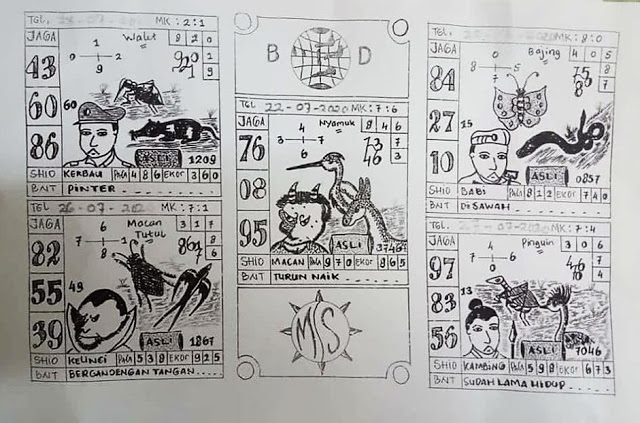 MK : 2 : 1
JAGA
Walet
8 2 0
43
1
0 2
9
60
60
86
1209
SHIO KERBAU PALA 4 8 6 EKOR 3 6 0
BNT PINTER
TGL 26-07-2020 MK : 7 : 1
JAGA
Macan Tutul
3 1 7
82
6
7 1
8
55
49
39
ASLI 1867
SHIO KELINCI PALA 5 3 8 EKOR 9 2 5
BNT BERGANDENGAN TANGAN . . . . .
B D
TGL 22-07-2020 MK : 7 : 6
JAGA
Nyamuk
8 4 6
76
4
3 7
6
73
46
7
3
08
95
ASLI 3746
SHIO MACAN PALA 9 7 0 EKOR 8 6 5
BNT TURUN NAIK
MS
MK : 8 : 0
JAGA
Bajing
4 0 5
84
0
8 5
7
27
15
10
ASLI 0857
SHIO BABI PALA 8 1 2 EKOR 7 4 0
BNT DISAWAH
TGL MK : 7 : 4
JAGA
Pinguin
3 0 6
97
4
7 6
0
83
13
56
ASLI 7046
SHIO KAMBING PALA 5 9 8 EKOR 6 7 3
BNT SUDAH LAMA HIDUP